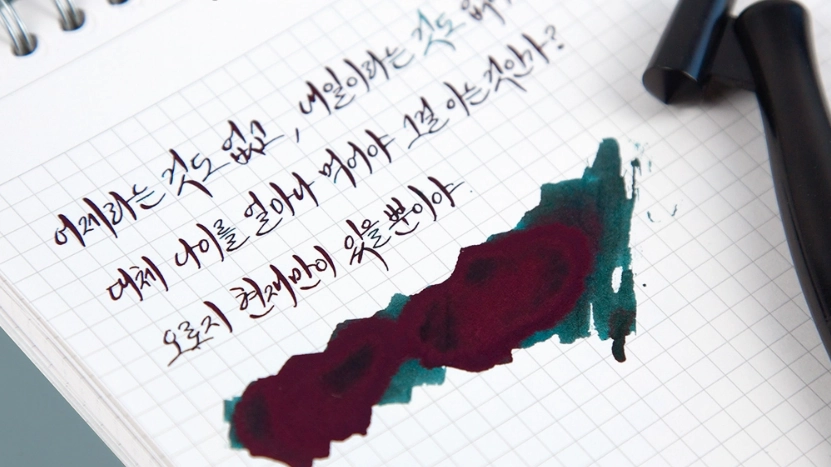 어제라는 것도 없고, 내일이라는 것도
대체 나이를 얼마나 먹어야 그걸 아는것인가?
오로지 현재만이 있을뿐이야